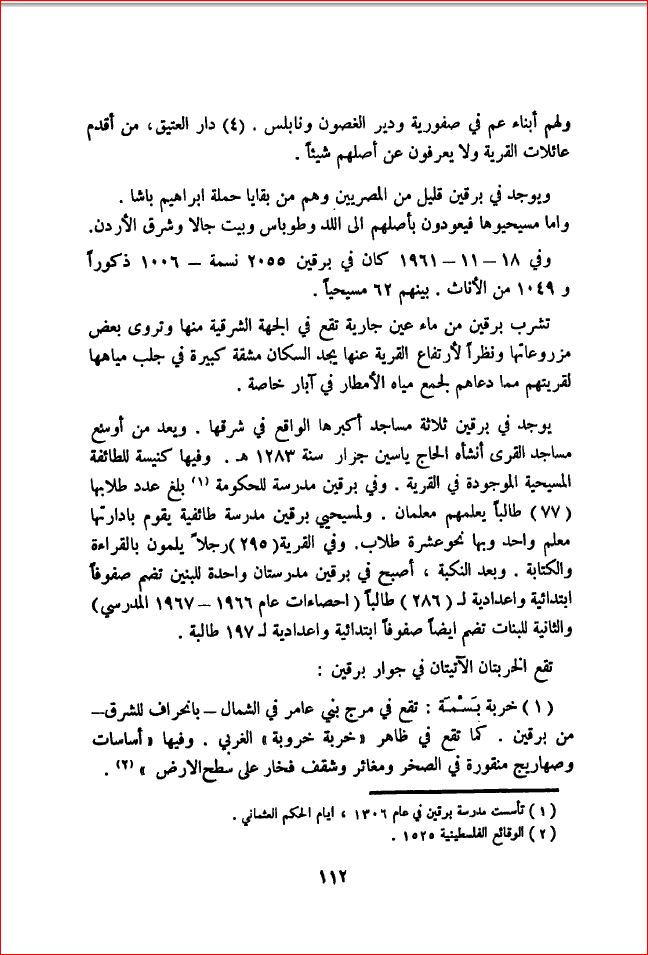 ولهم أبناء عم في صفورية ودير الغصون ونابلس . (٤) دار العتيق، من أقدم
عائلات القرية ولا يعرفون عن أصلهم شيئاً .
ويوجد في برقين قليل من المصريين وهم من بقايا حملة ابراهيم باشا .
واما مسيحيوها فيعودون بأصلهم الى اللد وطوباس وبيت جالا وشرق الأردن.
وفي ١٨ – ١١ – ١٩٦١ كان في برقين ٢٠٥٥ نسمة – ١٠٠٦ ذكوراً
و ١٠٤٩ من الأناث . بينهم ٦٢ مسيحياً .
تشرب برقين من ماء عين جارية تقع في الجهة الشرقية منها وتروى بعض
مزروعاتها ونظراً لأرتفاع القرية عنها يجد السكان مشقة كبيرة في جلب مياهها
لقريتهم مما دعاهم لجمع مياه الأمطار في آبار خاصة .
يوجد في برقين ثلاثة مساجد أكبرها الواقع في شرقها . ويعد من أوسع
مساجد القرى أنشأه الحاج ياسين جزار سنة ١٢٨٣ هـ . وفيها كنيسة للطائفة
المسيحية الموجودة في القرية . وفي برقين مدرسة للحكومة (١) بلغ عدد طلابها
(٧٧) طالباً يعلمهم معلمان . ولمسيحيي برقين مدرسة طائفية يقوم بادارتها
معلم واحد وبها نحو عشرة طلاب. وفي القرية (٢٩٥) رجلاً يلمون بالقراءة
والكتابة . وبعد النكبة ، أصبح في برقين مدرستان واحدة للبنين تضم صفوفاً
ابتدائية واعدادية لـ (٢٨٦) طالباً (احصاءات عام ١٩٦٦ – ١٩٦٧ المدرسي)
والثانية للبنات تضم ايضاً صفوفاً ابتدائية واعدادية لـ ١٩٧ طالبة .
تقع الخربتان الآتيتان في جوار برقين :
(١) خربة بَسْمَة : تقع في مرج بني عامر في الشمال – بانحراف للشرق–
من برقين . كما تقع في ظاهر «خربة خروبة» الغربي . وفيها «أساسات
وصهاريج منقورة في الصخر ومغائر وشقف فخار على سطح الارض » (٢) .
(١) تأسست مدرسة برقين في عام ١٣٠٦ ، ايام الحكم العثماني .
(٢) الوقائع الفلسطينية ١٥٢٥ .
١١٢